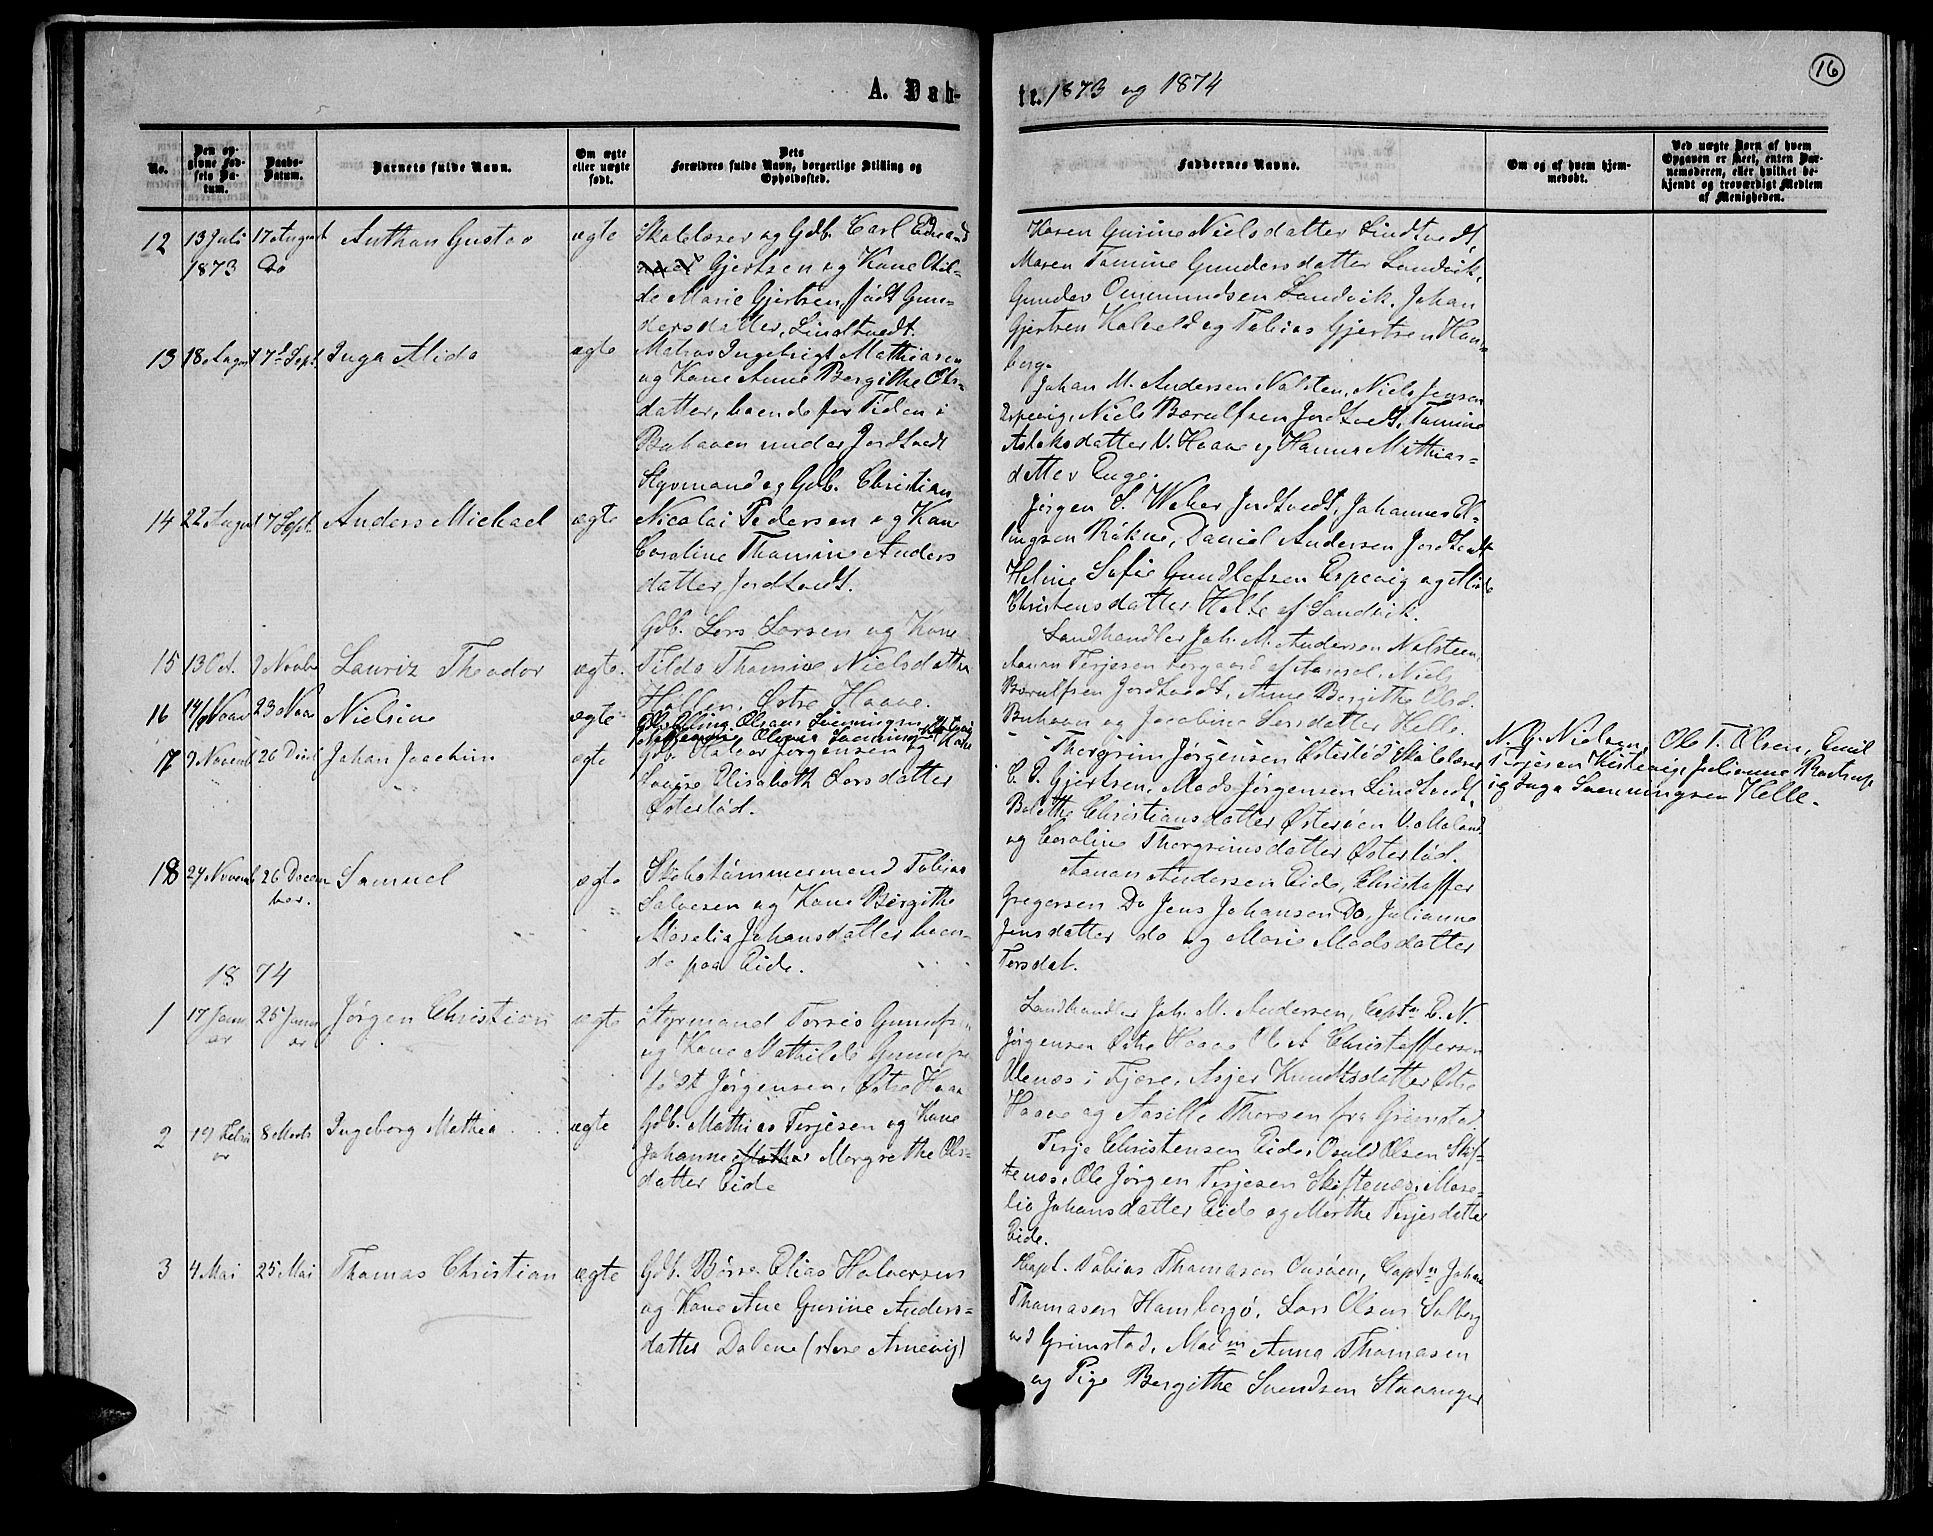 16
A. Dåb-
te. 1873 og 1874
No.
Den op-
givne Fød-
sels Da-
tum.
Daabs-
Datum.
Barnets fulde Navn.
Om ægte
eller uægte
født.
Dets
Forældres fulde Navn, borgerlige Stilling og
Opholdssted.
Faddernes Navne.
Om og af hvem hjem-
medøbt.
Ved uægte Børn af hvem
Opgaven er skeet, enten Bar-
nemoderen, eller hvilket be-
kjendt og troværdigt Medlem
af Menigheden.
12 13 Juli 17 August Anthon Gustav ægte
1873 Do
Skolelærer og Gdb. Carl Edvard
Gjertsen og Kone Otil-
de Marie Gjertsen, født Gun-
dersdatter, Lindtvedt.
Karen Gurine Nielsdatter Lindtvedt,
Maren Tomine Gundersdatter Landvik,
Gunder Ommundsen Landvik, Johan
Gjertsen Kalveld og Tobias Gjertsen Hom-
borg.
13 18 August 17d Sept. Inga Alida ægte
Matros Ingebrigt Mathiasen
og Kone Anne Bergithe Ols-
datter, boende for Tiden i
Buhaven under Jordtvedt
Johan M. Andersen Nalsten, Niels Jensen
Espevig, Niels Børulfsen Jordtvedt, Tomine
Aslaksdatter V. Haave og Hanna Mathias-
datter Enge.
14 22 August 17 Sept. Anders Michael ægte
Styrmand og Gdb. Christian
Nicolai Pedersen og Kone
Caroline Thomine Anders
datter Jordtvedt.
Jørgen S. Weber Jordtvedt, Johannes El-
lingsen Daniel Andersen Jordtvedt
Heline Sofie Gundlefsen Espevig og Alida
Christensdatter Holte af Landvik.
15 13 Oct. 9 Novbr Lauriz Theodor ægte.
Gdb. Lars Larsen og Kone
Tilda Thomine Nielsdatter
Hallen, Østre Haave.
Landhandler Joh. M. Andersen Nalsteen,
Aanon Terjesen Torgaard af Niels
Børulfsen Jordtvedt, Anne Bergithe Olsd.
Buhaven og Jacobine Larsdatter Helle.
16 14/9 Novbr 23 Nov Nielsine ægte
N. G. Nielsen, Ole T. Olsen, Emil
Terjesen Kistevig, Julianne Rastrup
og Inga Svenningsen Helle.
17 9 Novemb 26 Decb Johan Joachim ægte
Gdb. Halvor Jørgensen og Kone
Louise Elisabeth Larsdatter
Østerlød.
Thorgrim Jørgensen Østerlød, Skolelærer
C. E. Gjertsen, Mads Jørgensen Lindtvedt,
Bolethe Christiansdatter Østerøen V. Moland
og Caroline Thorgrimsdatter Østerlød.
18 27 Novemb 26 Decem Samuel ægte
ber.
Skibstømmermand Tobias
Salvesen og Kone Bergithe
Maselia Johansdatter boen-
de paa Eide.
Aanon Andersen Eide, Christoffer
Gregersen Do Jens Johansen Do, Julianne
Jensdatter do og Marie Madsdatter
Torsdal.
1874
1 17 Janu 25 Janu Jørgen Christian ægte
ar ar
Styrmand Gunufsen
og Kone Mathilde Gunufsen
født Jørgensen, Østre Haave
Landhandler Joh. M. Andersen, Captn E. N.
Jørgensen Østre Haave Ole A Christoffersen
Ulenæs i Fjære, Asjer Knudtsdatter Østre
Haave og Aasille Thorsen fra Grimstad.
2 19 Febru 8 Marts Ingeborg Mathea ægte
ar
Gdb. Mathias Terjesen og Kone
Johanne Margrethe Ols-
datter Eide
Terje Christensen Eide, Osuld Olsen Skif-
tenæs, Ole Jørgen Terjesen Skiftenæs, Mase-
lia Johansdatter Eide og Marthe Terjesdatter
Eide.
3 4 Mai 25 Mai Thomas Christian ægte
Gdb. Børre Elias Halvorsen
og Kone Ane Gurine Anders-
datter Dalene (store Arnevig)
Capt. Tobias Thomasen Omsøen, Captn Johan
Thomasen Hamborgø, Lars Olsen Solberg
ved Grimstad, Madm Anna Thomasen
og Pige Bergithe Svendsen Stavanger